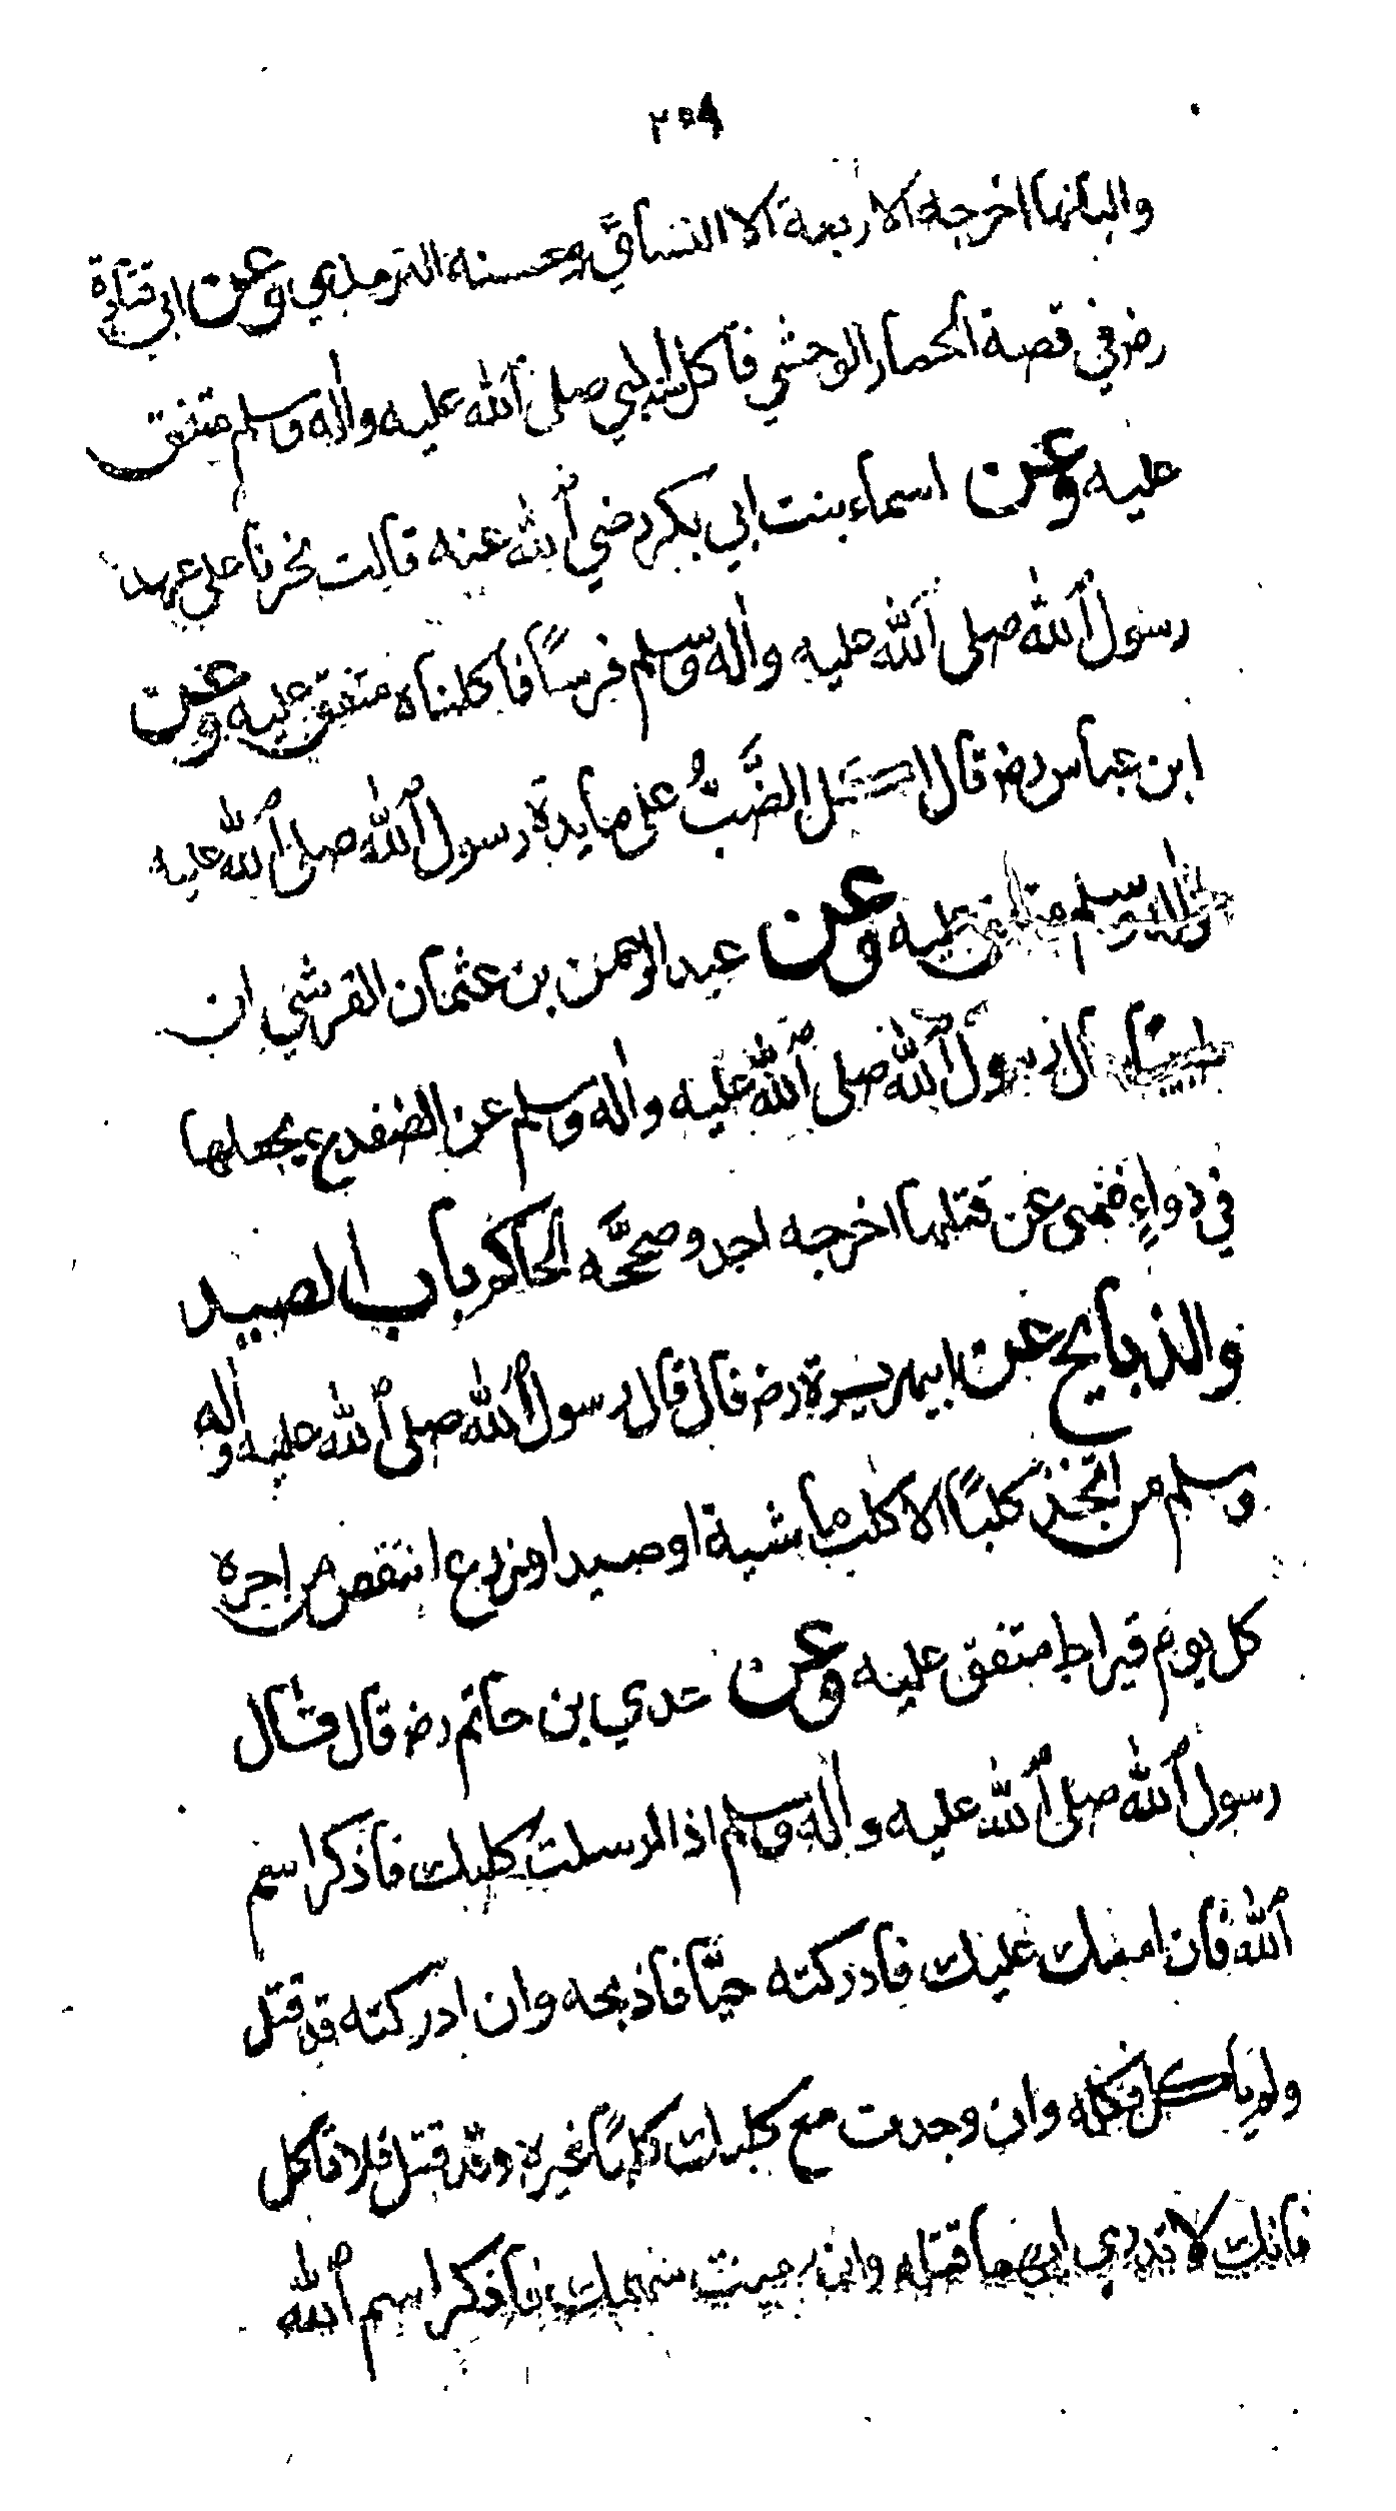 ٢٥٩
والبانها اخرجه الاربعة الا النسائي وحسنه الترمذي وعن ابي قتادة
رضـ في قصة الحمار الوحشي فاكل منه النبي صلى الله عليه واٰله وسلم متفق
عليه وعن اسماء بنت ابي بكر رضي الله عنه قالت نحرنا على عهد
رسول الله صلى الله عليه واٰله وسلم فرسًا فاكلناه متفق عليه وعن
ابن عباس رضـ قال اكل الضَّبُّ على مايدة رسول الله صلى الله عليه
واٰله وسلم متفق عليه وعن عبد الرحمن بن عثمان القرشي ان
طبيبًا سال رسول الله صلى الله عليه واٰله وسلم عن الضفدع يجعلها
في دواءٍ فنهى عن قتلها اخرجه احمد وصححَّه الحاكم باب الصيد
والذبايح عن ابيهريرة رضـ قال قال رسول الله صلى الله عليه واٰله
وسلم من اتخذ كلبًا الا كلب ماشية او صيد او زرع انتقص من اجره
كل يوم قيراط متفق عليه وعن عدي بن حاتم رضـ قال قال
رسول الله صلى الله عليه واٰله وسلم اذا ارسلت كلبك فاذكر اسم
الله فان امسك عليك فادركته حيًّا فاذبحه وان ادركته قد قتل
ولم ياكل فكله وان وجدت مع كلبك كلبًا غيره وقد قتل فلا تاكل
فانك لا تدري ايهما قتله وان رميت سهمك فاذكر اسم الله